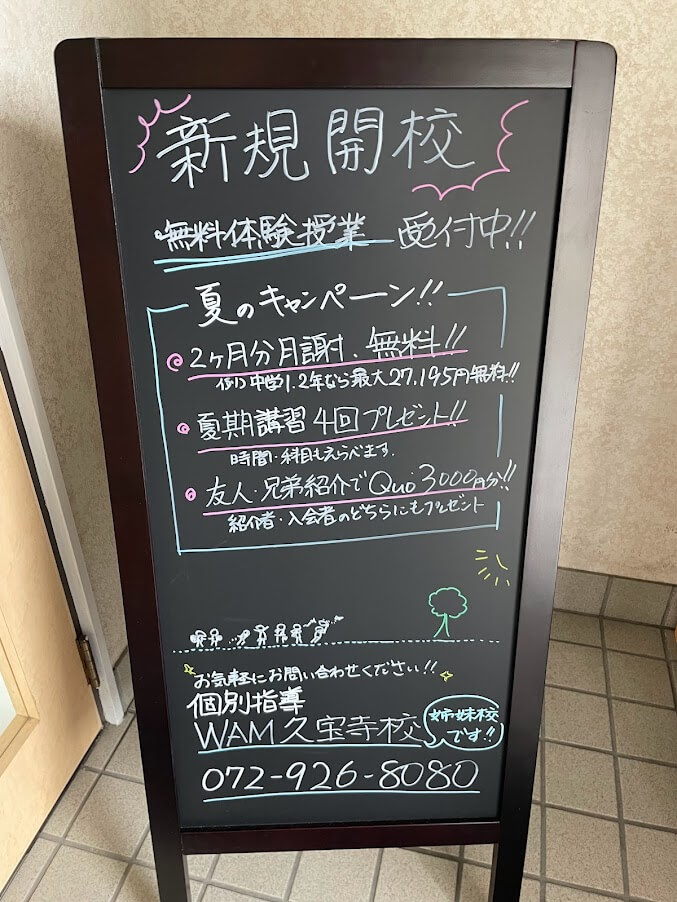 新規開校
無料体験授業 受付中!!
夏のキャンペーン!!
2ヶ月分月謝、無料!!
例) 中学1.2年なら最大27,195円無料!!
夏期講習4回プレゼント!!
時間・科目もえらべます.
友人・兄弟紹介でQuo3000円分!!
紹介者・入会者のどちらにもプレゼント
お気軽にお問い合わせください!!
個別指導
WAM久宝寺校
姉妹校
です!!
072-926-8080